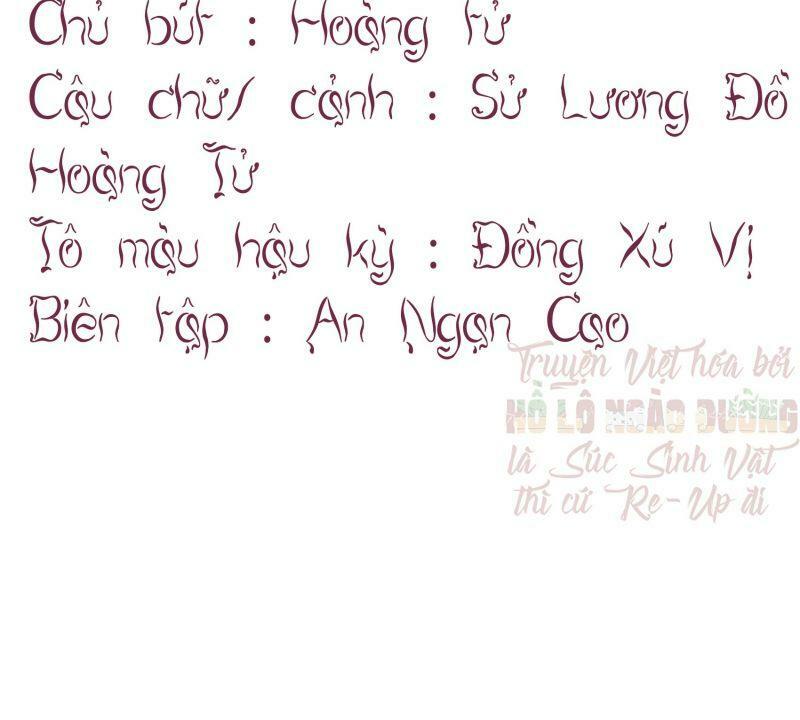 Chủ bút : Hoàng tử
Câu chữ/ cảnh : Sử Lương Đồ
Hoàng Tử
Tô màu hậu kỳ : Đồng Xú Vị
Biên tập : An Ngạn Cao
Truyện Việt hóa bởi
HỒ LÔ NGÀO ĐƯỜNG
là Súc Sinh Vật
thì cứ Re-Up đi